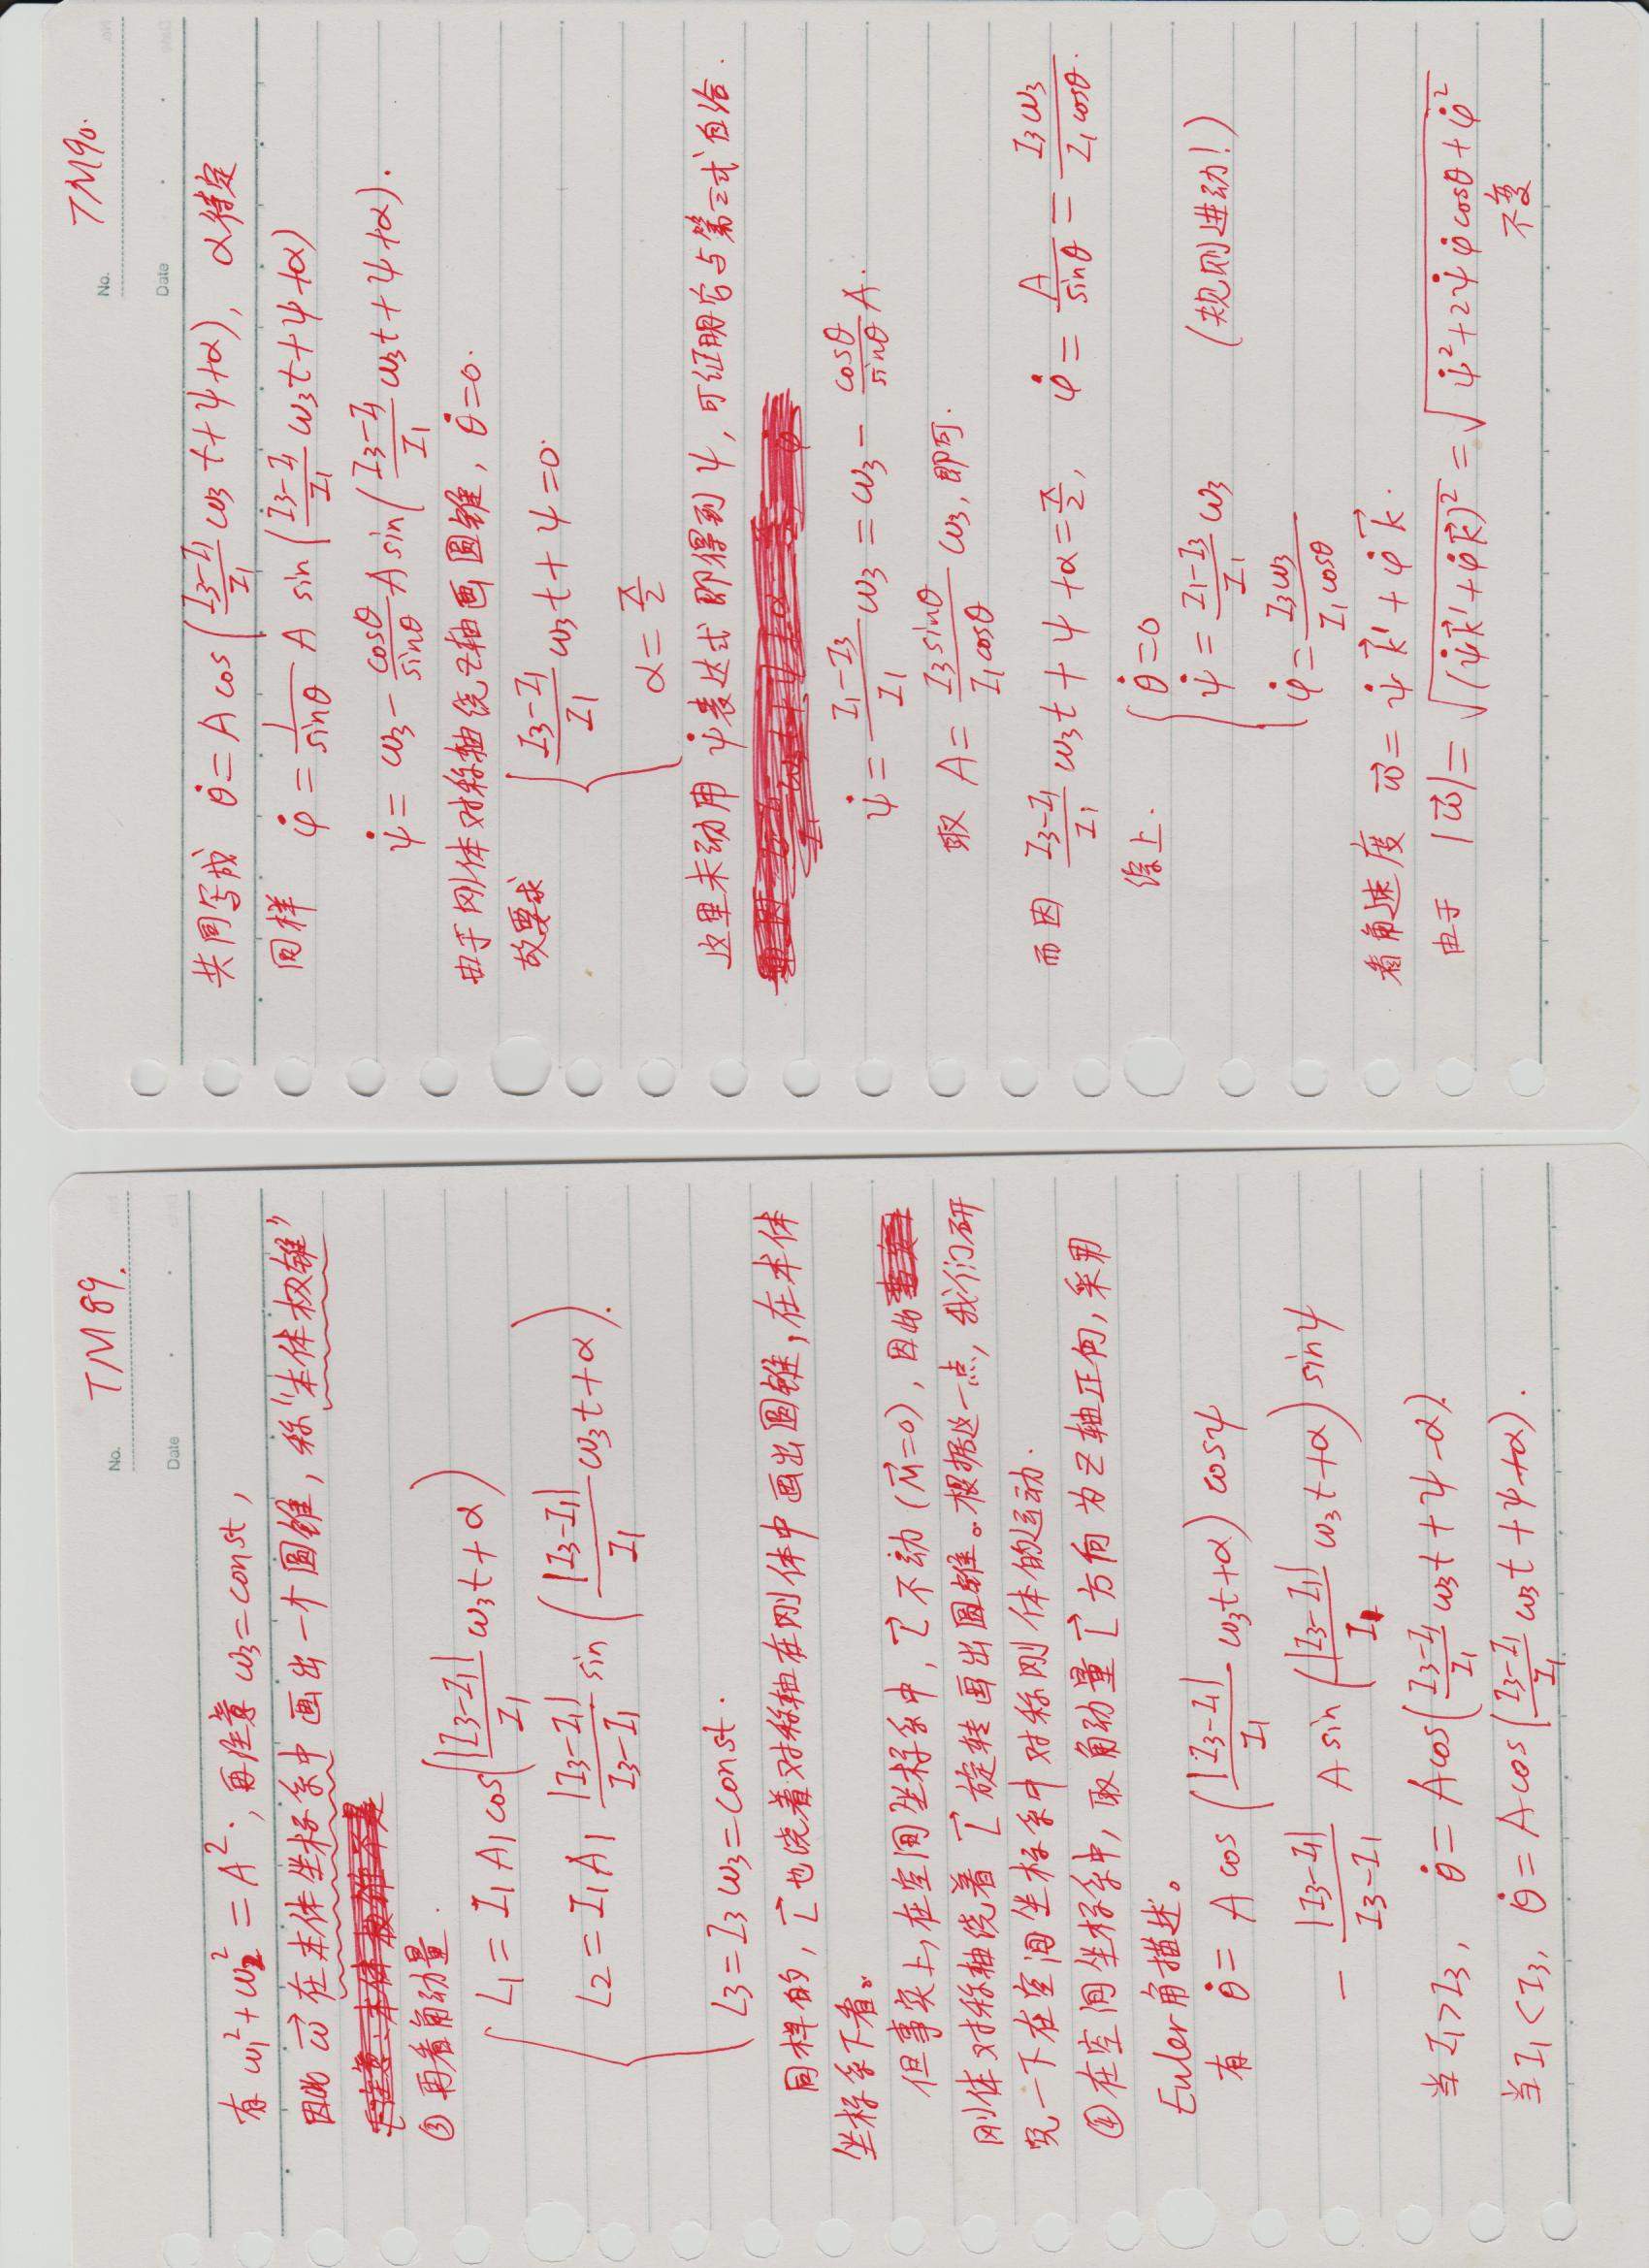 No. TM89.
Date
有 ω₁²+ω₂² = A²., 再注意 ω₃=const,
因此 ω⃗ 在本体坐标系中画出一个圆锥, 称“本体极锥”
③ 再看角动量.
L₁ = I₁A₁cos(|I₃-I₁|/I₁ ω₃t+α)
L₂ = I₁A₁ |I₃-I₁|/(I₃-I₁) sin(|I₃-I₁|/I₁ ω₃t+α).
L₃=I₃ω₃=const.
同样的, L⃗也绕着对称轴在刚体中画出圆锥, 在本体
坐标系下看。
但事实上, 在空间坐标系中, L⃗不动(M⃗=0), 因此
刚体对称轴绕着 L⃗ 旋转画出圆锥。根据这一点, 我们研
究一下在空间坐标系中对称刚体的运动.
④ 在空间坐标系中, 取角动量L⃗方向为Z轴正向, 采用
Euler角描述。
有 θ̇ = A cos(|I₃-I₁|/I₁ ω₃t+α) cosψ
- |I₃-I₁|/(I₃-I₁) A sin(|I₃-I₁|/I₁ ω₃t+α) sinψ
当I₁>I₃, θ̇ = Acos((I₃-I₁)/I₁ ω₃t+ψ-α).
当I₁<I₃, θ̇ = Acos((I₃-I₁)/I₁ ω₃t+ψ+α).
No. TM90.
Date
共同写成 θ̇ = A cos((I₃-I₁)/I₁ ω₃t+ψ+α), α待定
同样 φ̇ = 1/sinθ A sin((I₃-I₁)/I₁ ω₃t+ψ+α)
ψ̇ = ω₃ - cosθ/sinθ A sin((I₃-I₁)/I₁ ω₃t+ψ+α).
由于刚体对称轴绕Z轴画圆锥, θ̇=0.
故要求 (I₃-I₁)/I₁ ω₃t+ψ=0.
α=π/2
这里未动用ψ̇表达式即得到ψ, 可证明它与第三式自洽.
ψ̇ = (I₁-I₃)/I₁ ω₃ = ω₃ - cosθ/sinθ A.
取 A = I₃sinθ/(I₁cosθ) ω₃, 即可.
而因 (I₃-I₁)/I₁ ω₃t+ψ+α=π/2, φ̇ = A/sinθ = I₃ω₃/(I₁cosθ).
综上. θ̇=0
ψ̇ = (I₁-I₃)/I₁ ω₃ (规则进动!)
φ̇ = I₃ω₃/(I₁cosθ)
看角速度 ω⃗ = ψ̇k⃗′+φ̇k⃗.
由于 |ω⃗| = √((ψ̇k⃗′+φ̇k⃗)²) = √(ψ̇²+2ψ̇φ̇cosθ+φ̇²)
不变